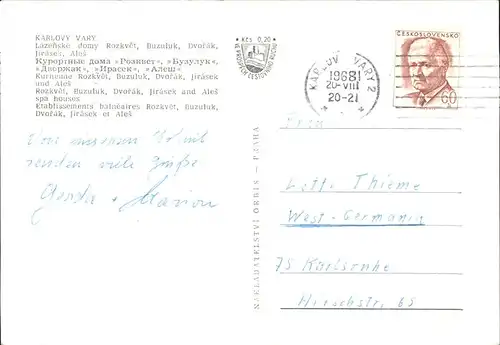 KARLOVY VARY
Lázeňské domy Rozkvět, Buzuluk, Dvořák,
Jirásek, Aleš
Курортные дома »Розквет«, »Бузулук«,
»Дворжак«, »Ирасек«, »Алеш«
Kurheime Rozkvět, Buzuluk, Dvořák, Jirásek
und Aleš
Rozkvět, Buzuluk, Dvořák, Jirásek and Aleš
spa houses
Etablissements balnéaires Rozkvět, Buzuluk,
Dvořák, Jirásek et Aleš
Kčs 0,20
ČESKOSLOVENSKO
60
KARLOVY VARY 2
1968
20-VIII
20-21
Von unserem
senden viele Grüße
Gerda + Marion
NAKLADATELSTVÍ ORBIS - PRAHA
Lotte Thieme
West-Germania
75 Karlsruhe
Hirschstr. 65